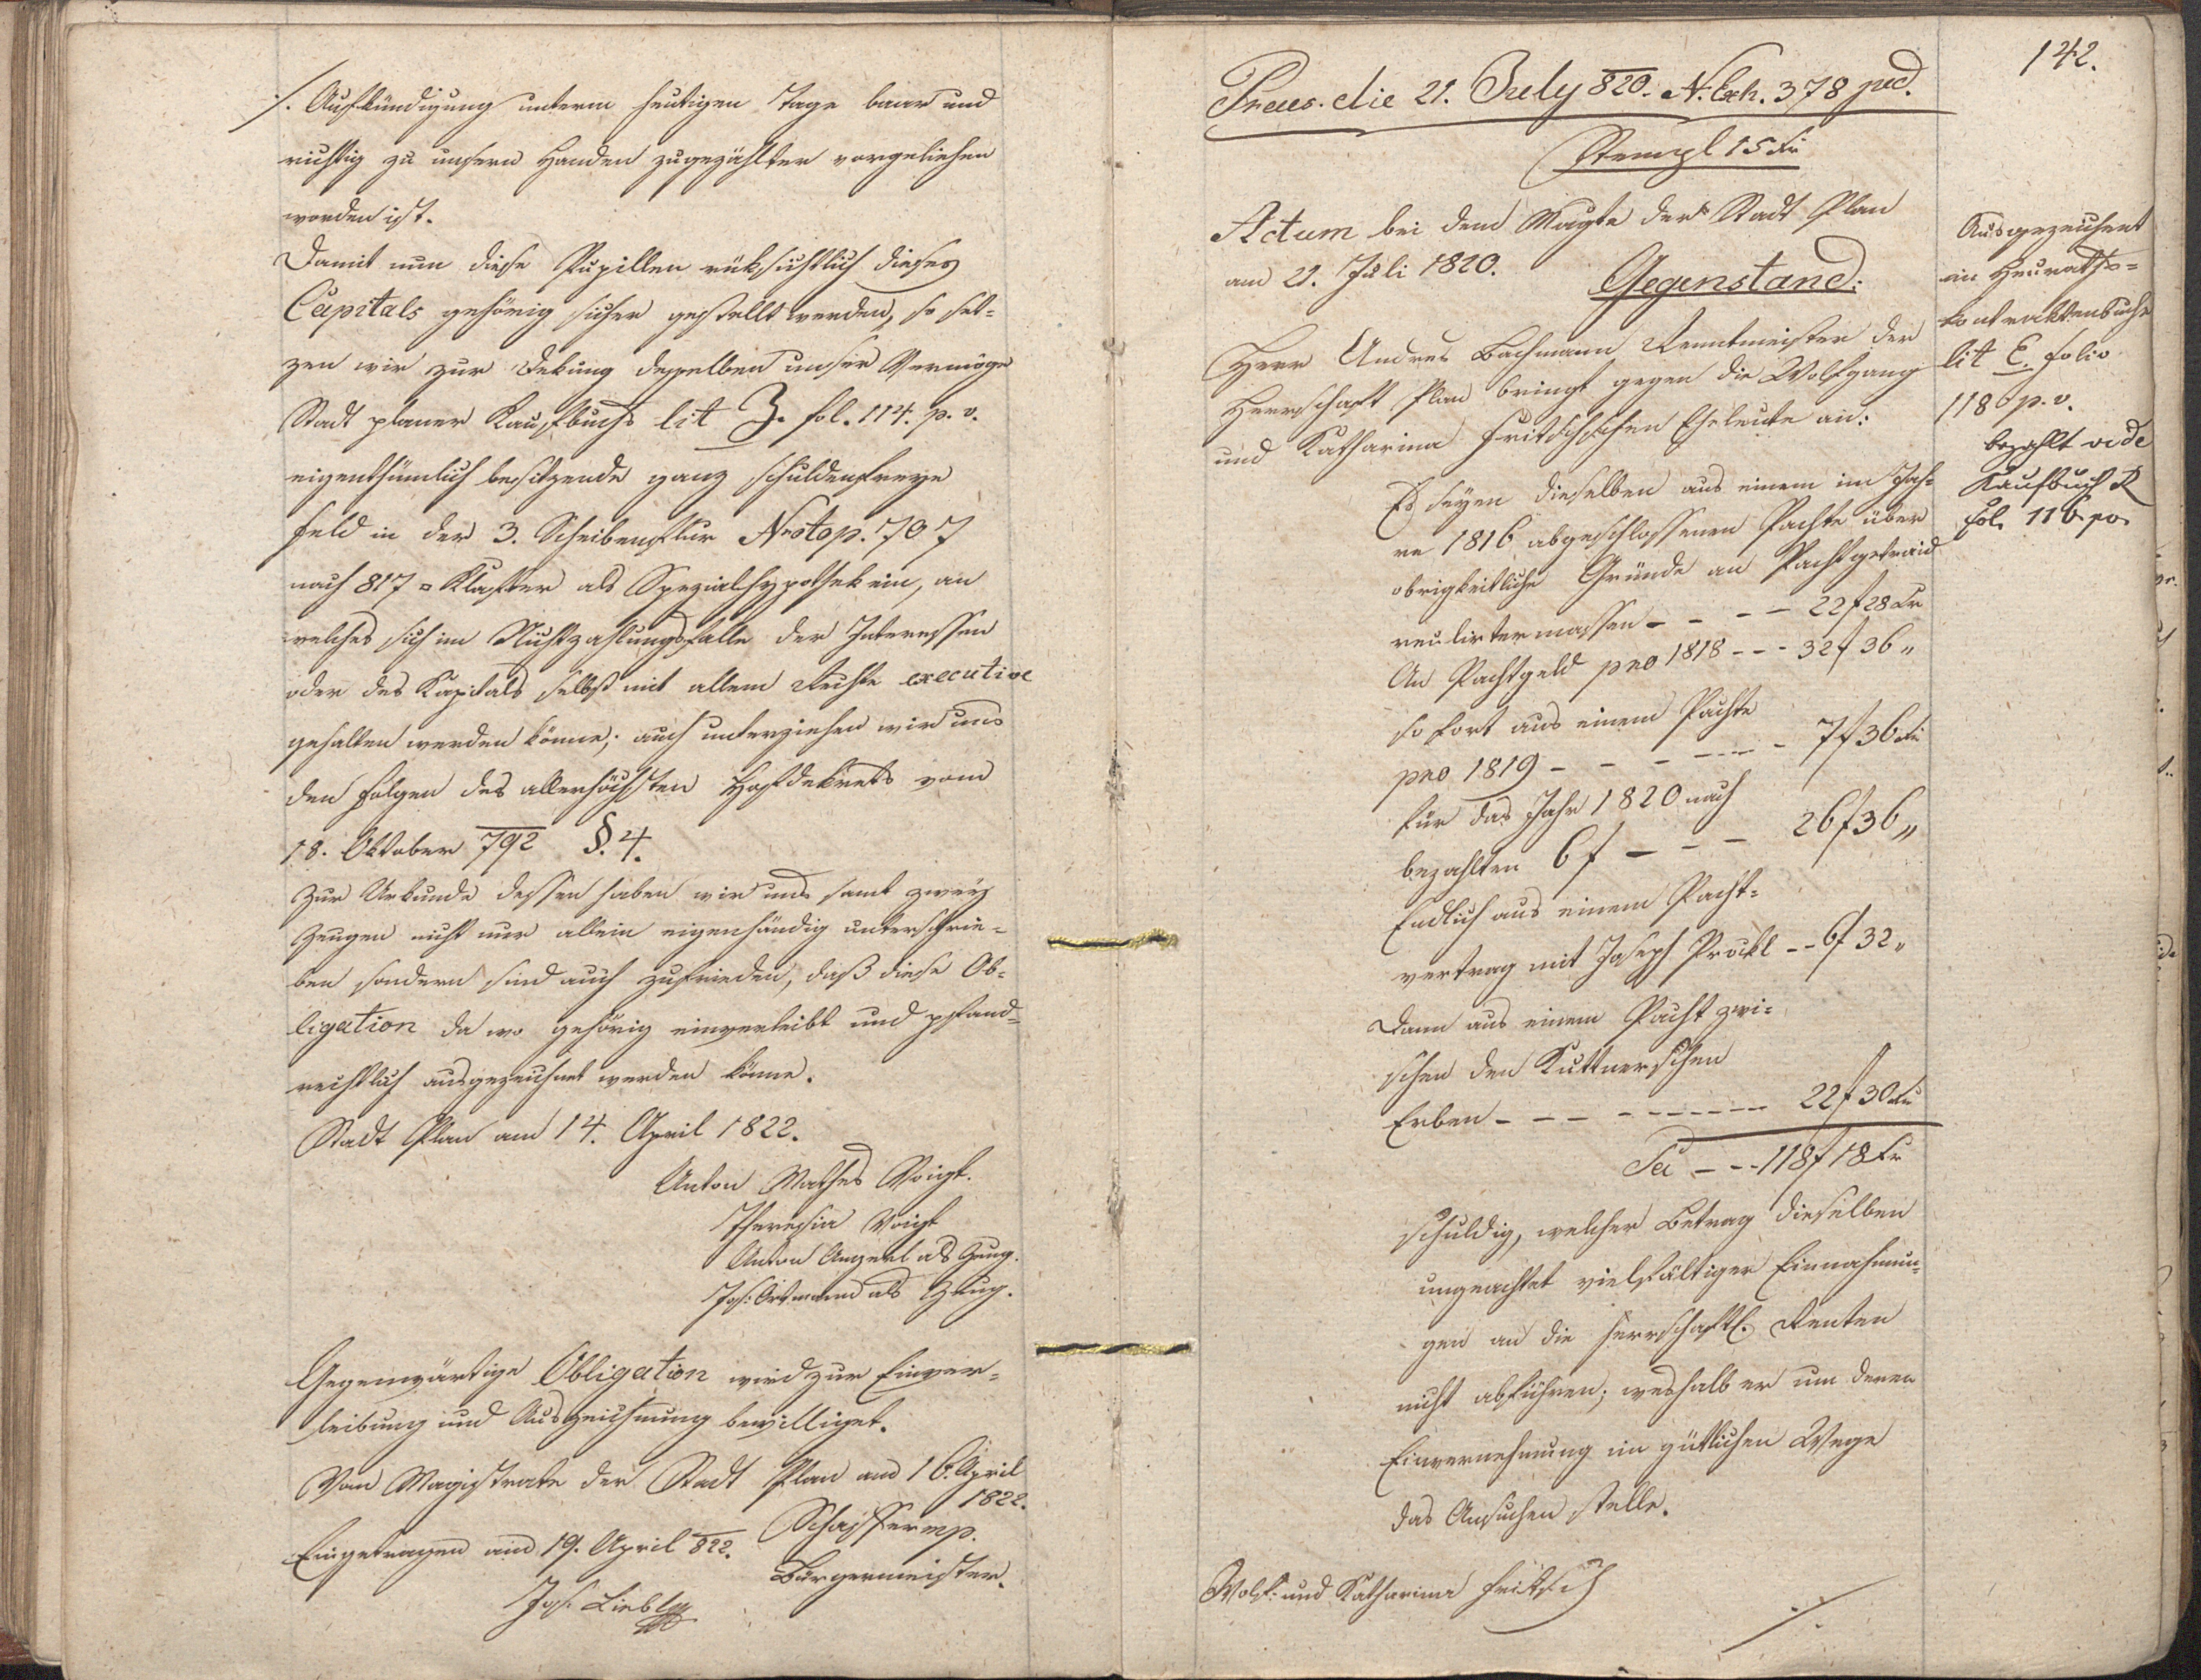 ./. Aufkündigung unterm heutigen Tage baar und
richtig zu unsern Handen zugezählter vorgeliehen
worden ist.
Damit nun diese Pupillen rüksichtlich dieses
Capitals gehörig sicher gestellt werden, so set-
zen wir zur Dekung desselben unser Vermöge
Stadt planer Kaufbuchs lit Z. fol. 114. p. v.
eigenthümlich besitzende ganz schuldenfreye
Feld in der 3. Scheibenflur Nrotop. 707
nach 817 □ Klafter als Spezialhypothek ein, an
welches sich im Nichtzahlungsfalle der Interessen
oder des Kapitals selbst mit allem Rechte executive
gehalten werden könne; auch unterziehen wir uns
den Folgen des allerhöchsten Hofdekrets vom
18. Oktober 792 §. 4.
Zur Urkunde dessen haben wir uns samt zwey
Zeugen nicht nur allein eigenhändig unterschrie-
ben sondern sind auch zufrieden, daß diese Ob-
ligation da wo gehörig einverleibt und pfand-
rechtlich ausgezeichnet werden könne.
Stadt Plan am 14. April 1822.
Anton Mathes Voigt.
Theresia Voigt
Anton Angerl als Zeug.
Jos: Ortmann als Zeug.
Gegenwärtige Obligation wird zur Einver-
leibung und Auszeichnung bewilliget.
Vom Magistrate der Stadt Plan am 16. April
1822.
Schaffer mp.
Bürgermeister.
Eingetragen am 19. April 822.
Jos. Liebl
142.
Praes. die 21. July 820. N. Exh. 378 jud.
Stempl 15 Kr
Actum bei dem Magte der Stadt Plan
am 21. Juli 1820.
Gegenstand:
Herr Andres Bachmann Rentmeister der
Herrschaft Plan bringt gegen die Wolfgang
und Katharina Fritschischen Eheleute an:
Es seyen dieselben aus einem im Jah-
re 1816 abgeschlossenen Pachte über
obrigkeitliche Gründe an Pachtgetraid
reulirtermassen - - - - 22 f 28 Kr
An Pachtgeld pro 1818 - - - 32 f 36 „
so fort aus einem Pachte
pro 1819 - - - - - - 7 f 36 Kr
für das Jahr 1820 nach
bezahlten 6 f - - - 26 f 36 „
Endlich aus einem Pacht-
vertrag mit Joseph Prökl - - 6 f 32 „
Dann aus einem Pacht zwi-
schen den Kuttnerschen
Erben - - - - - - - - - 22 f 30 Kr
Sa - - - 118 f 18 Kr
schuldig, welcher Betrag dieselben
ungeachtet vielfältiger Einnahmun-
gen an die herrschaftl. Renten
nicht abführen; weshalb er um deren
Einvernehmung im gütlichen Wege
das Ansuchen stelle.
Wolf: und Katharina Fritsch
./.
Ausgezeichnet
im Heuraths-
kontraktenbuche
lit E. folio
118 p. v.
bezahlt vide
Kaufbuch R
fol. 116 po.